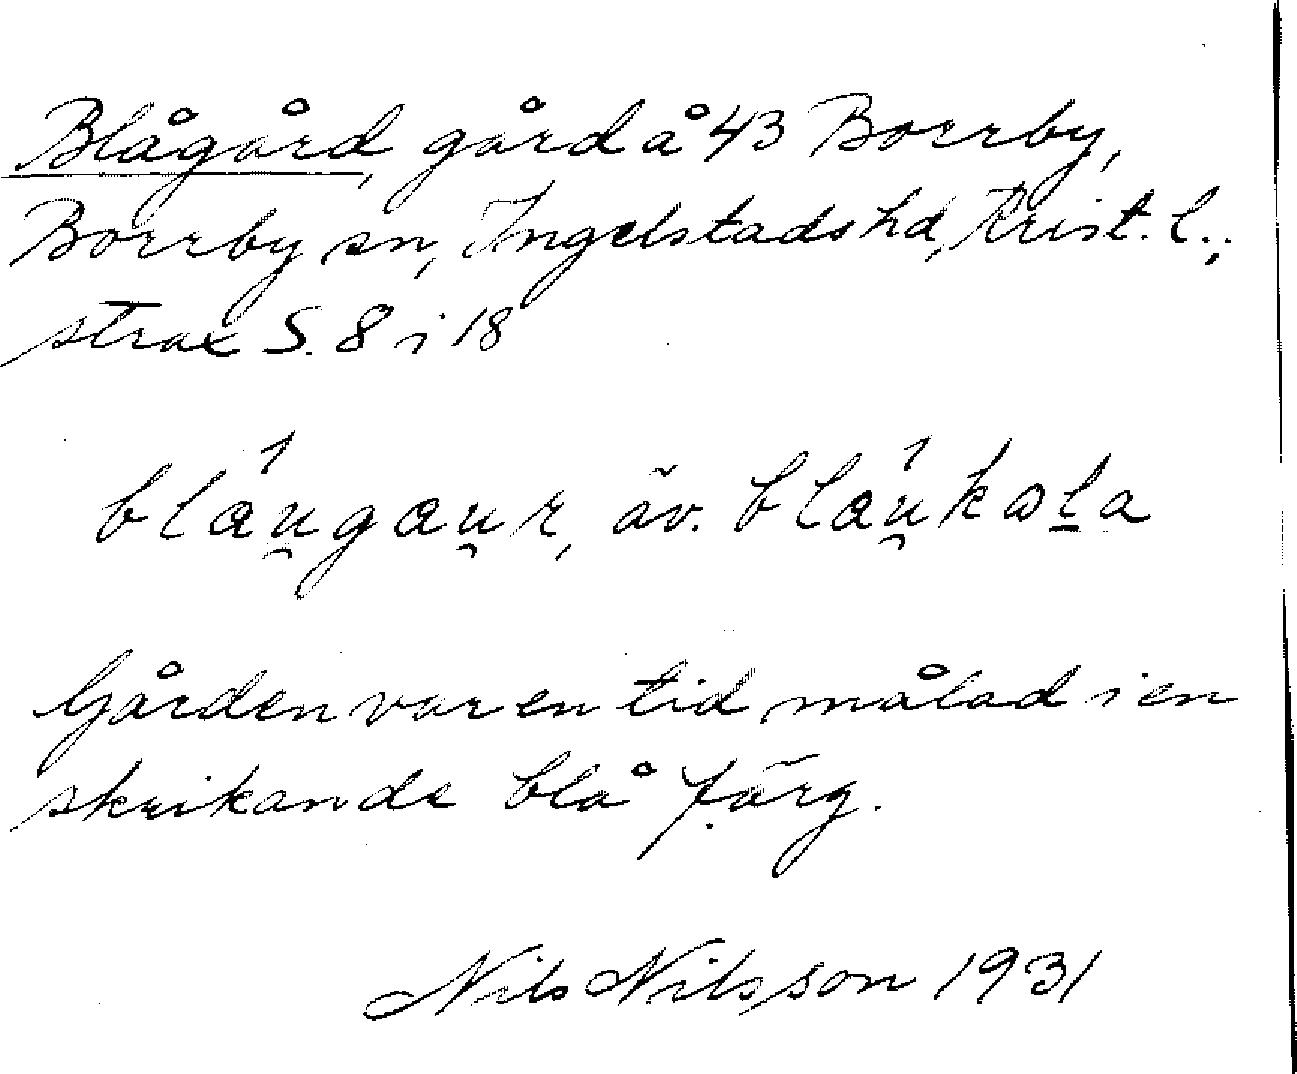 Blågård, gård å 43 Borrby,
Borrby sn, Ingelstads hd, Krist. l.;
strax S. 8 i 18
blau̯gau̯r, äv. blau̯kəla
Gården var en tid målad i en
skrikande blå färg.
Nils Nilsson 1931